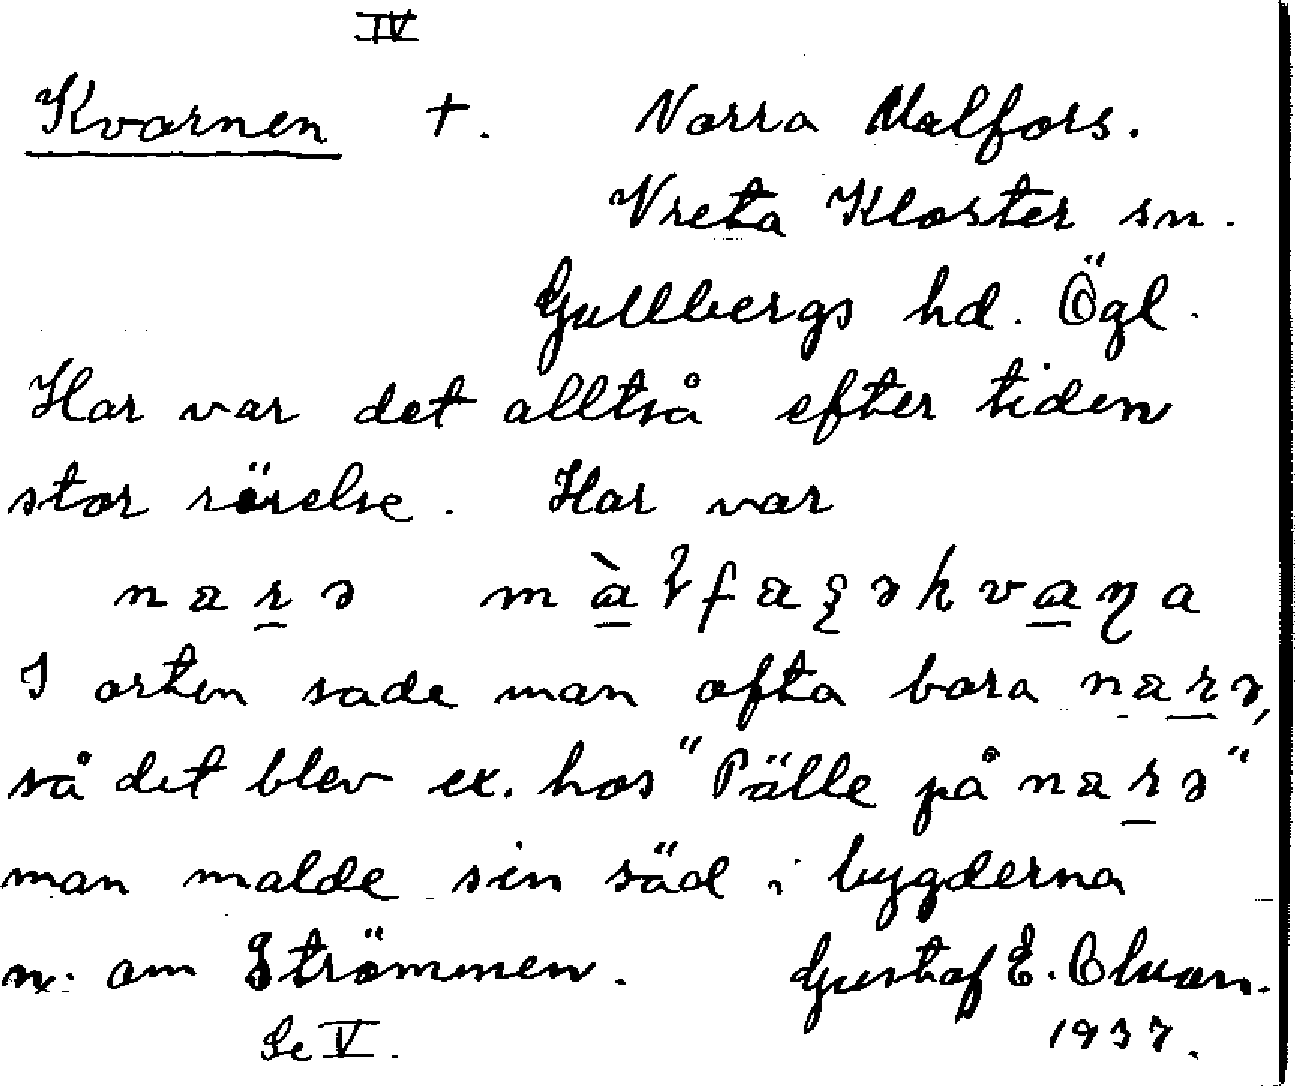 IV
Kvarnen +. Norra Malfors.
Vreta Kloster sn.
Gullbergs hd. Ögl.
Har var det alltså efter tiden
stor rörelse. Har var
narə màlfaʂəkvaɳa
I orten sade man ofta bara narə,
så det blev ex. hos "Pälle på narə"
man malde sin säd i bygderna
n. om Strömmen. Gustaf E.
Se V. 1937.